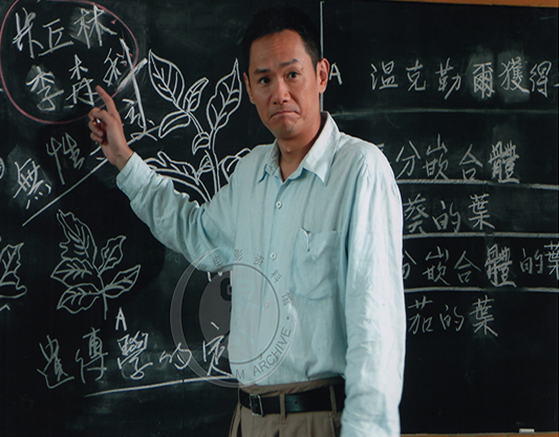 米丘林
李森科
無性
A
遺傳學的
A
溫克勒爾獲得
分嵌合體
葵的葉
分嵌合體的葉
茄的葉
ARCHIVE